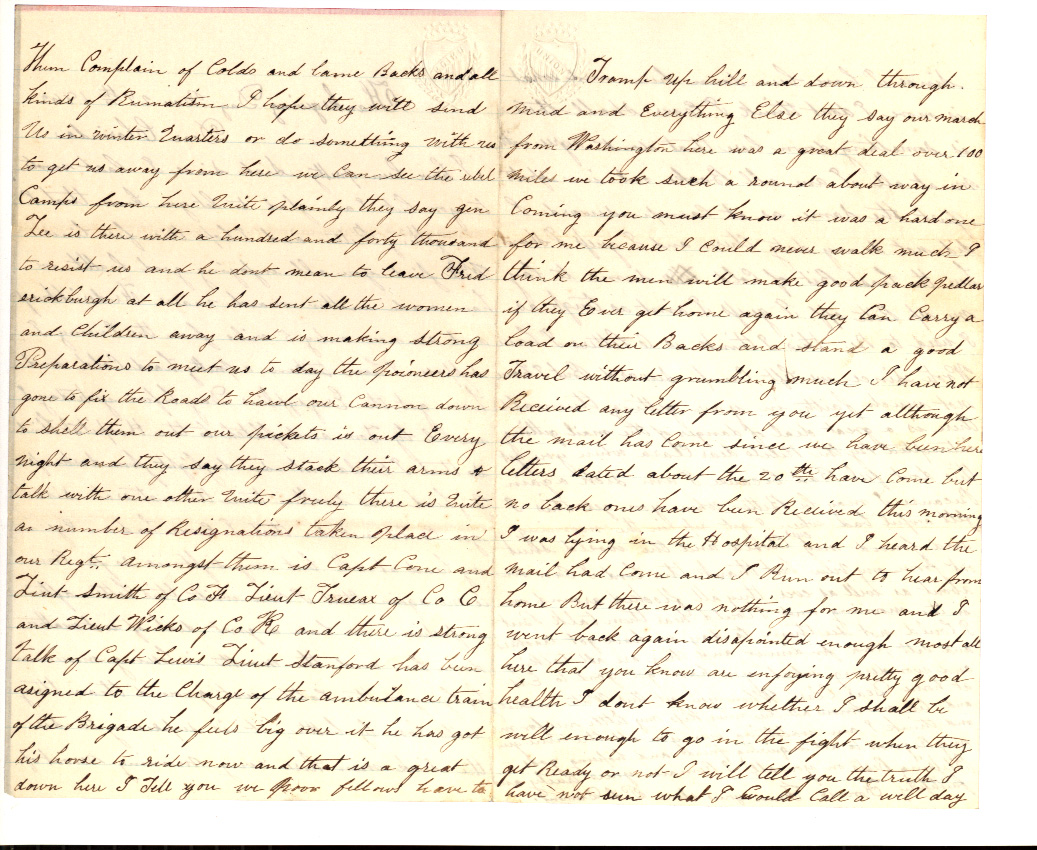 Them Complain of Colds and lame Backs and all
kinds of Rumatism I hope they will send
Us in winter Quarters or do something with us
to get us away from here we Can see the rebel
Camps from here Quite plainly they say gen
Lee is there with a hundred and forty thousand
to resist us and he dont mean to leave Fred
erickburgh at all he has sent all the women
and Children away and is making strong
Preparations to meet us to day the pioineers has
gone to fix the Roads to hawl our Cannon down
to shell them out our pickets is out Every
night and they say they stack their arms &
talk with one other Quite freely there is Quite
an number of Resignations taken place in
our Regt. amongst them is Capt Cone and
Lieut Smith of Co H Lieut Trueax of Co C
and Lieut Wicks of Co K and there is strong
talk of Capt Lewis Lieut Stanford has been
asigned to the Charge of the ambulance train
of the Brigade he feels big over it he has got
his horse to ride now and that is a great
down here I Tell you we Poor fellows have to
UNION
UNION
Tramp up hill and down through
mud and Everything Else they say our march
from Washington here was a great deal over 100
miles we took such a round about way in
Coming you must know it was a hard one
for me because I could never walk much I
think the men will make good pack pedlar
if they Ever get home again they Can Carry a
load on their Backs and stand a good
Travel without grumbling much I have not
Received any letter from you yet although
the mail has Come since we have been here
letters dated about the 20th have Come but
no back ones have been Recieved this morning
I was lying in the Hospital and I heard the
mail had Come and I Run out to hear from
home But there was nothing for me and I
went back again disapointed enough most all
here that you know are enjoying pretty good
health I dont know whether I shall be
well enough to go in the fight when they
get Ready or not I will tell you the truth I
have not seen what I Would Call a well day